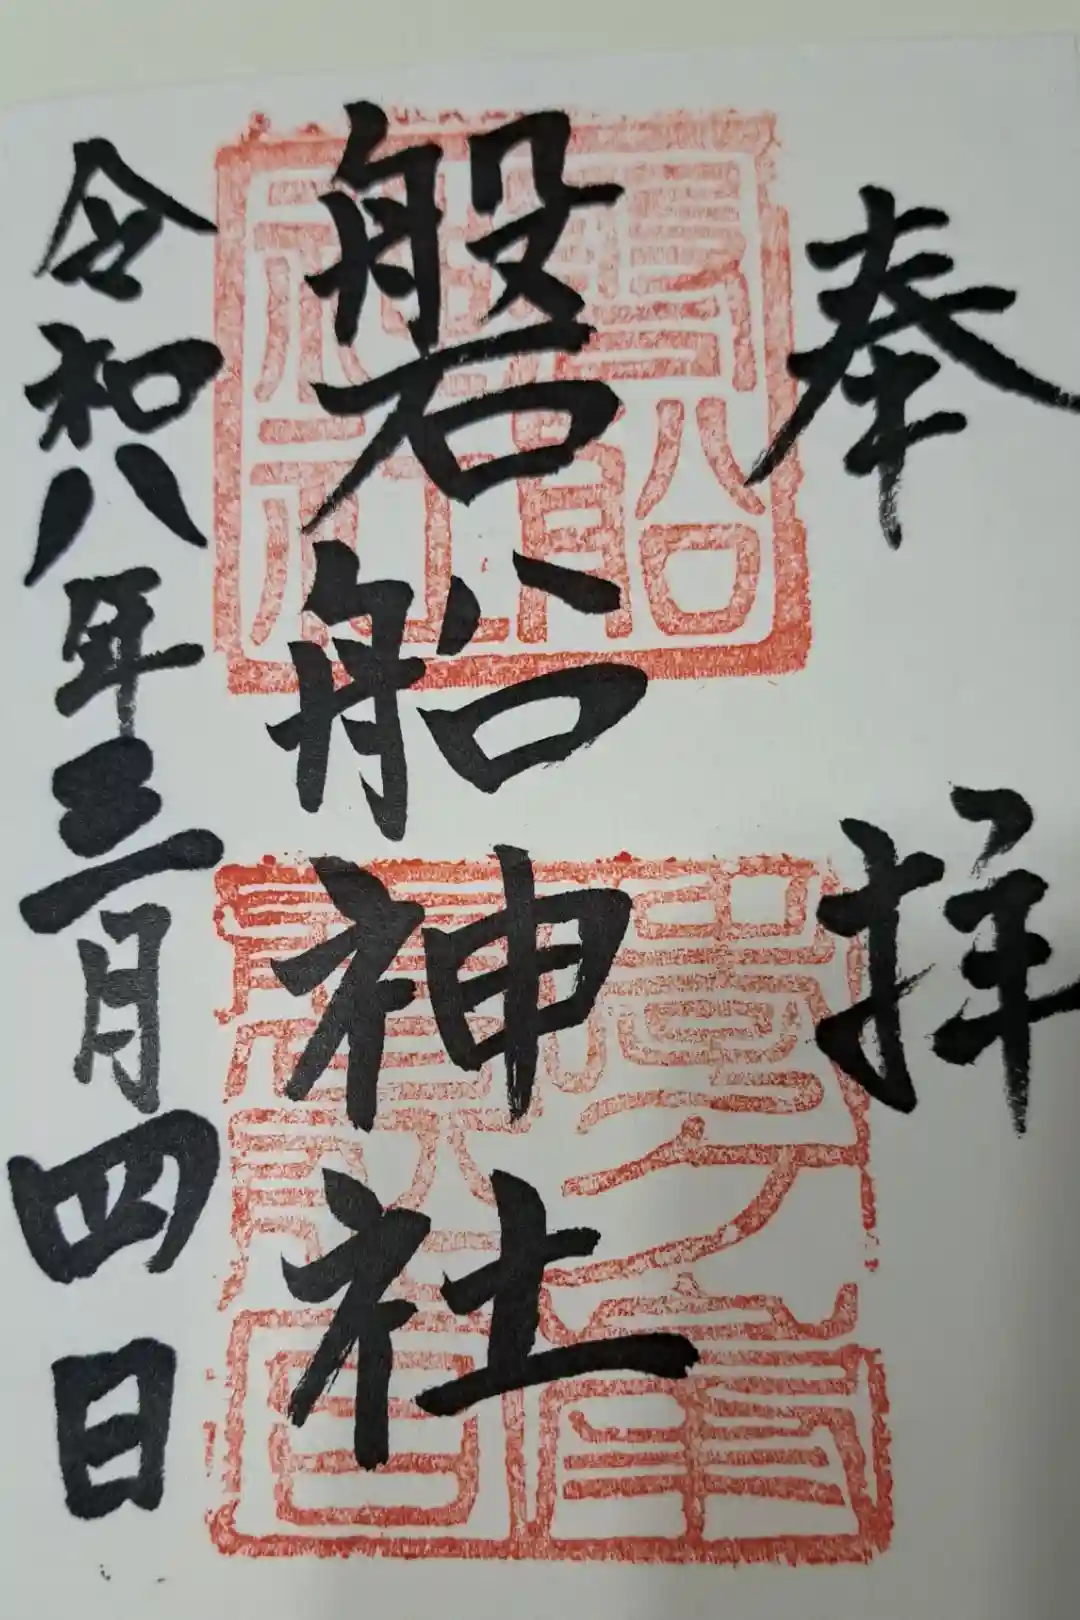 奉拝
磐船神社
令和八年三月四日